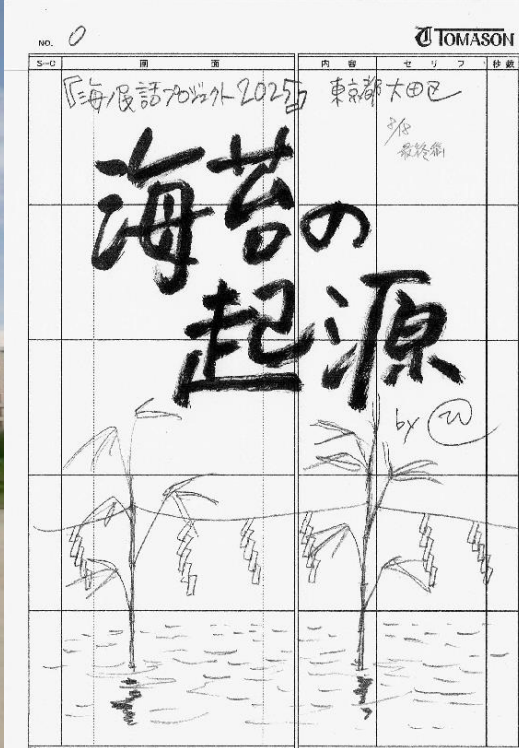 NO. 0
TOMASON
S-C 画面 内容 セリフ 秒数
『海ノ民話プロジェクト2025』 東京都大田区
最終稿
海苔の
起源
by